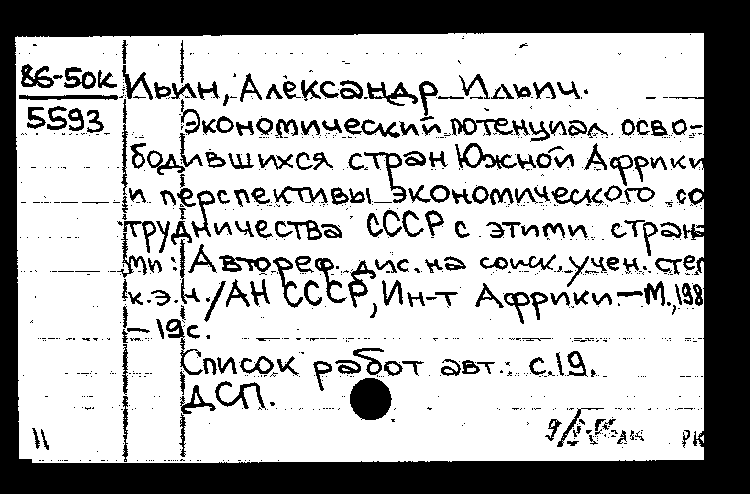 86-50к Иьин, Александр Ильич.
5593 Экономический потенциал осво-
бодившихся стран Южной Африки
и перспективы экономического со
трудничества СССР с этими страна
ми: Автореф. дис. на соиск. учен. степ
к.э.н./АН СССР, Ин-т Африки.—М.,198
—19с.
Список работ авт.: с.19.
ДСП.
11 РК